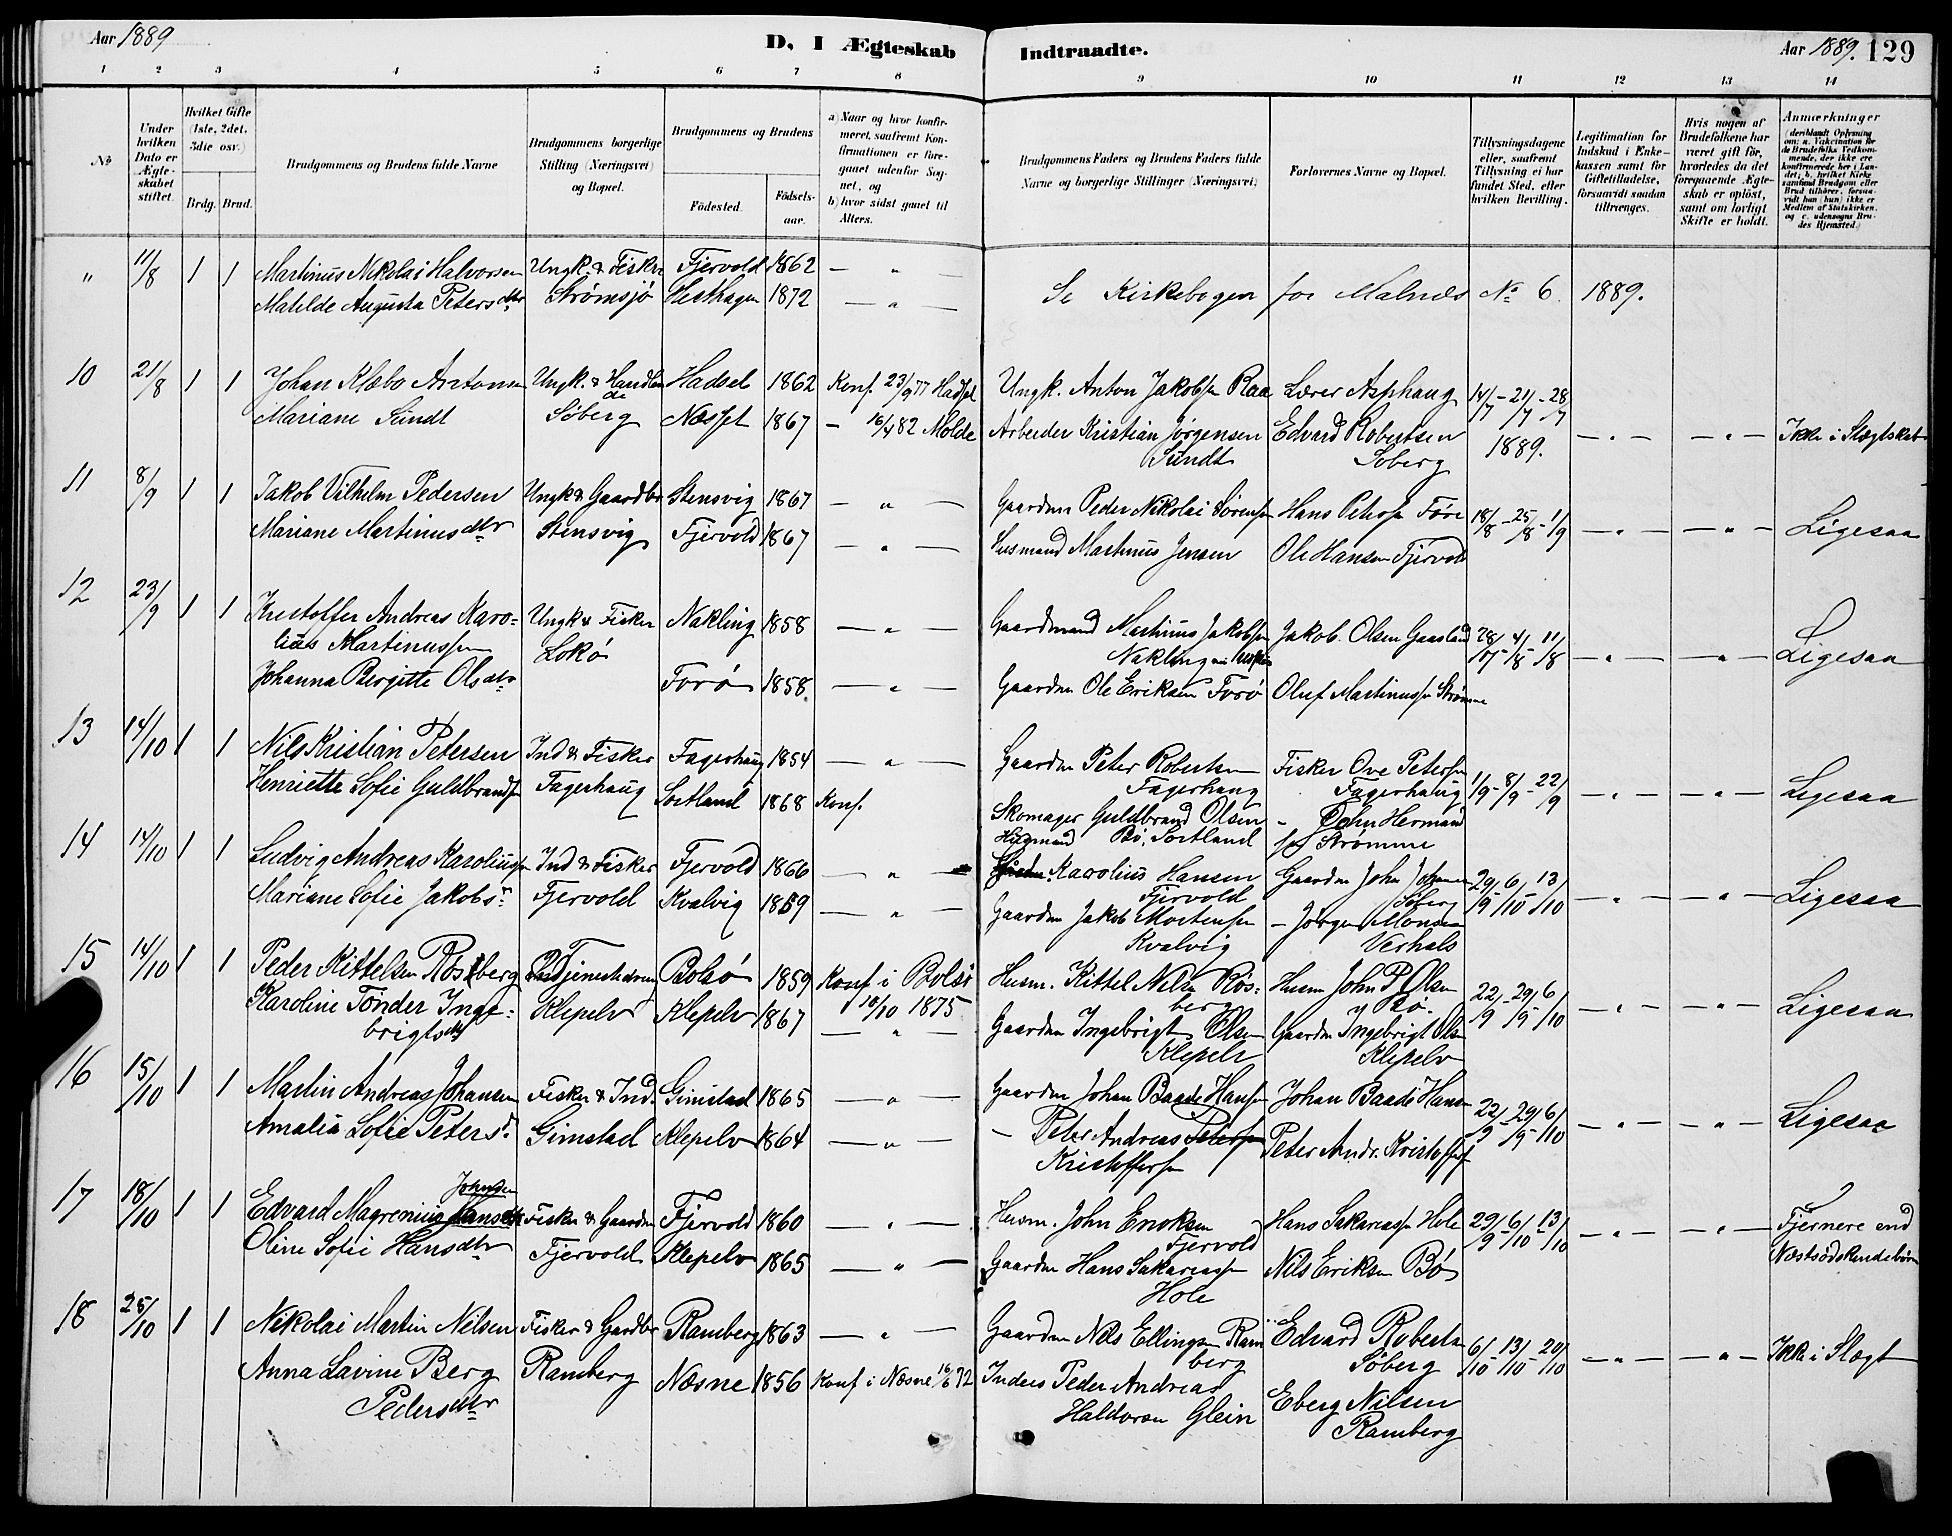 Aar 1889
D, I Ægteskab Indtraadte.
Aar 1889. 129
1 2 3 4 5 6 7 8 9 10 11 12 13 14
No
Under hvilken Dato er Ægteskabet stiftet.
Hvilket Gifte (1ste, 2det, 3die osv.)
Brdg. Brud.
Brudgommens og Brudens fulde Navne
Brudgommens borgerlige Stilling (Næringsvei) og Bopæl.
Brudgommens og Brudens
Fødested.
Fødselsaar.
a) Naar og hvor konfirmeret, saafremt Konfirmationen er foregaaet udenfor Sognet, og
b) hvor sidst gaaet til Alters.
Brudgommens Faders og Brudens Faders fulde Navne og borgerlige Stillinger (Næringsvei)
Forlovernes Navne og Bopæl.
Tillysningsdagene eller, saafremt Tillysning ei har fundet Sted, efter hvilken Bevilling.
Legitimation for Indskud i Enkekassen samt for Giftetilladelse, forsaavidt saadan tiltrænges.
Hvis nogen af Brudefolkene har været gift før, hvorledes da det foregaaende Ægteskab er opløst, samt om lovligt Skifte er holdt.
Anmærkninger
(deriblandt Oplysning om: a. Vakcination for de Brudefolks Vedkommende, der ikke ere konfirmerede her i Landet; b. hvilket Kirkesamfund Brudgom eller Brud tilhører, forsaavidt han (hun) ikke er Medlem af Statskirken, og c. udensogns Brudes Hjemsted.)
" 11/8 1 1 Martinus Nikolai Halvorsen Ungk. & Fisker Fjervold 1862 — " —
Matilde Augusta Petersdtr Strømsjø Hesthagen 1872 — " —
Se Kirkebogen for Malnes No 6 1889.
10 21/8 1 1 Johan Klæbo Antonsen Ungk. & Handlende Hadsel 1862 Konf. 23/9 77 Hadsel Ungk. Anton Jakobsen Raa Lærer Asphaug 14/7 - 21/7 - 28/7
Mariane Sundt Søberg Næsset 1867 - 16/4 82 Molde Arbeider Kristian Jørgensen Sundt Edvard Robertsen Søberg 1889. — " — — " — Ikke i Slægtskab
11 8/9 1 1 Jakob Vilhelm Pedersen Ungk & Gaardbr Stensvig 1867 — " — Gaardm Peder Nikolai Sørensen Hans Peters Føre 18/8 - 25/8 - 1/9
Mariane Martinusdtr Stensvig Fjervold 1867 — " — Husmand Martinus Jensen Ole Hansen Fjervold — " — — " — Ligesaa
12 23/9 1 1 Kristoffer Andreas Karolius Martinussen Ungk & Fisker Lokø Nakling 1858 — " — Gaardmand Martinus Jakobsen Nakling Jakob Olsen Gaasland 28/7 - 4/8 - 11/8 — " — — " — Ligesaa
Johanna Bergitte Olsdtr Forø 1858. — " — Gaardm Ole Eriksen Forø Oluf Martinussen Strømme
13 14/10 1 1 Nils Kristian Petersen Ind & Fisker Fagerhaug 1854 — " — Gaardm Peter Robertsen Fagerhaug Fisker Ove Petersen Fagerhaug 1/9 - 8/9 - 22/9 — " — — " — Ligesaa
Henriette Sofie Guldbrands Fagerhaug Sortland 1868 Konf. Skomager Guldbrand Olsen Bø, Sortland - John Hermand Strømme
14 14/10 1 1 Ludvig Andreas Karoliussen Ind & Fisker Fjervold 1866 — " — Husmand Karolius Hansen Fjervold Gaardm John Johnsen Søberg 29/9 - 6/10 - 13/10
Mariane Sofie Jakobs Fjervold Kvalvig 1859 — " — Gaardm Jakob Mortensen Kvalvig - Jørgen Monsen Verhals — " — — " — Ligesaa
15 14/10 1 1 Peder Kittelsen Røsberg Tjenestedreng Bolsø 1859 Konf. i Bolsø 10/10 1875 Husm. Kittel Nilsen Røsberg Husm John P Olsen Bø. 22/9 - 29/9 - 6/10
Karoline Tønder Ingebrigtsdtr Klepelv Klepelv 1867 — " — Gaardm Ingebrigt Olsen Klepelv Gaardm Ingebrigt Olsen Klepelv — " — — " — Ligesaa
16 15/10 1 1 Martin Andreas Johansen Fisker & Ind. Gimstad 1865 — " — Gaardm Johan Baade Hansen Johan Baade Hansen 22/9 - 29/9 - 6/10
Amalia Sofie Peters Gimstad Klepelv 1864 — " — - Peter Andreas Kristoffersen Peter Andr. Kristoffers — " — — " — Ligesaa
17 18/10 1 1 Edvard Magrenius Johnsen Fisker & Gaardm Fjervold 1860 — " — Husm. John Enoksen Fjervold Hans Sakariassen Hole 29/9 - 6/10 - 13/10
Oline Sofie Hansdtr Fjervold Klepelv 1865 — " — Gaardm Hans Sakariassen Hole Nils Eriksen Bø — " — — " — Fjernere end Næstsødskendebørn
18 25/10 1 1 Nikolai Martin Nilsen Fisker & Gardbr Ramberg 1863 — " — Gaardm Nils Ellingsen Ramberg Edvard Roberts Søberg 6/10 - 13/10 - 20/10
Anna Lavine Berg Pedersdtr Ramberg Næsne 1856 Konf i Næsne 16/6 72 Inders Peder Andreas Haldorsen Glein Eberg Nilsen Ramberg — " — — " — Ikke i Slægt